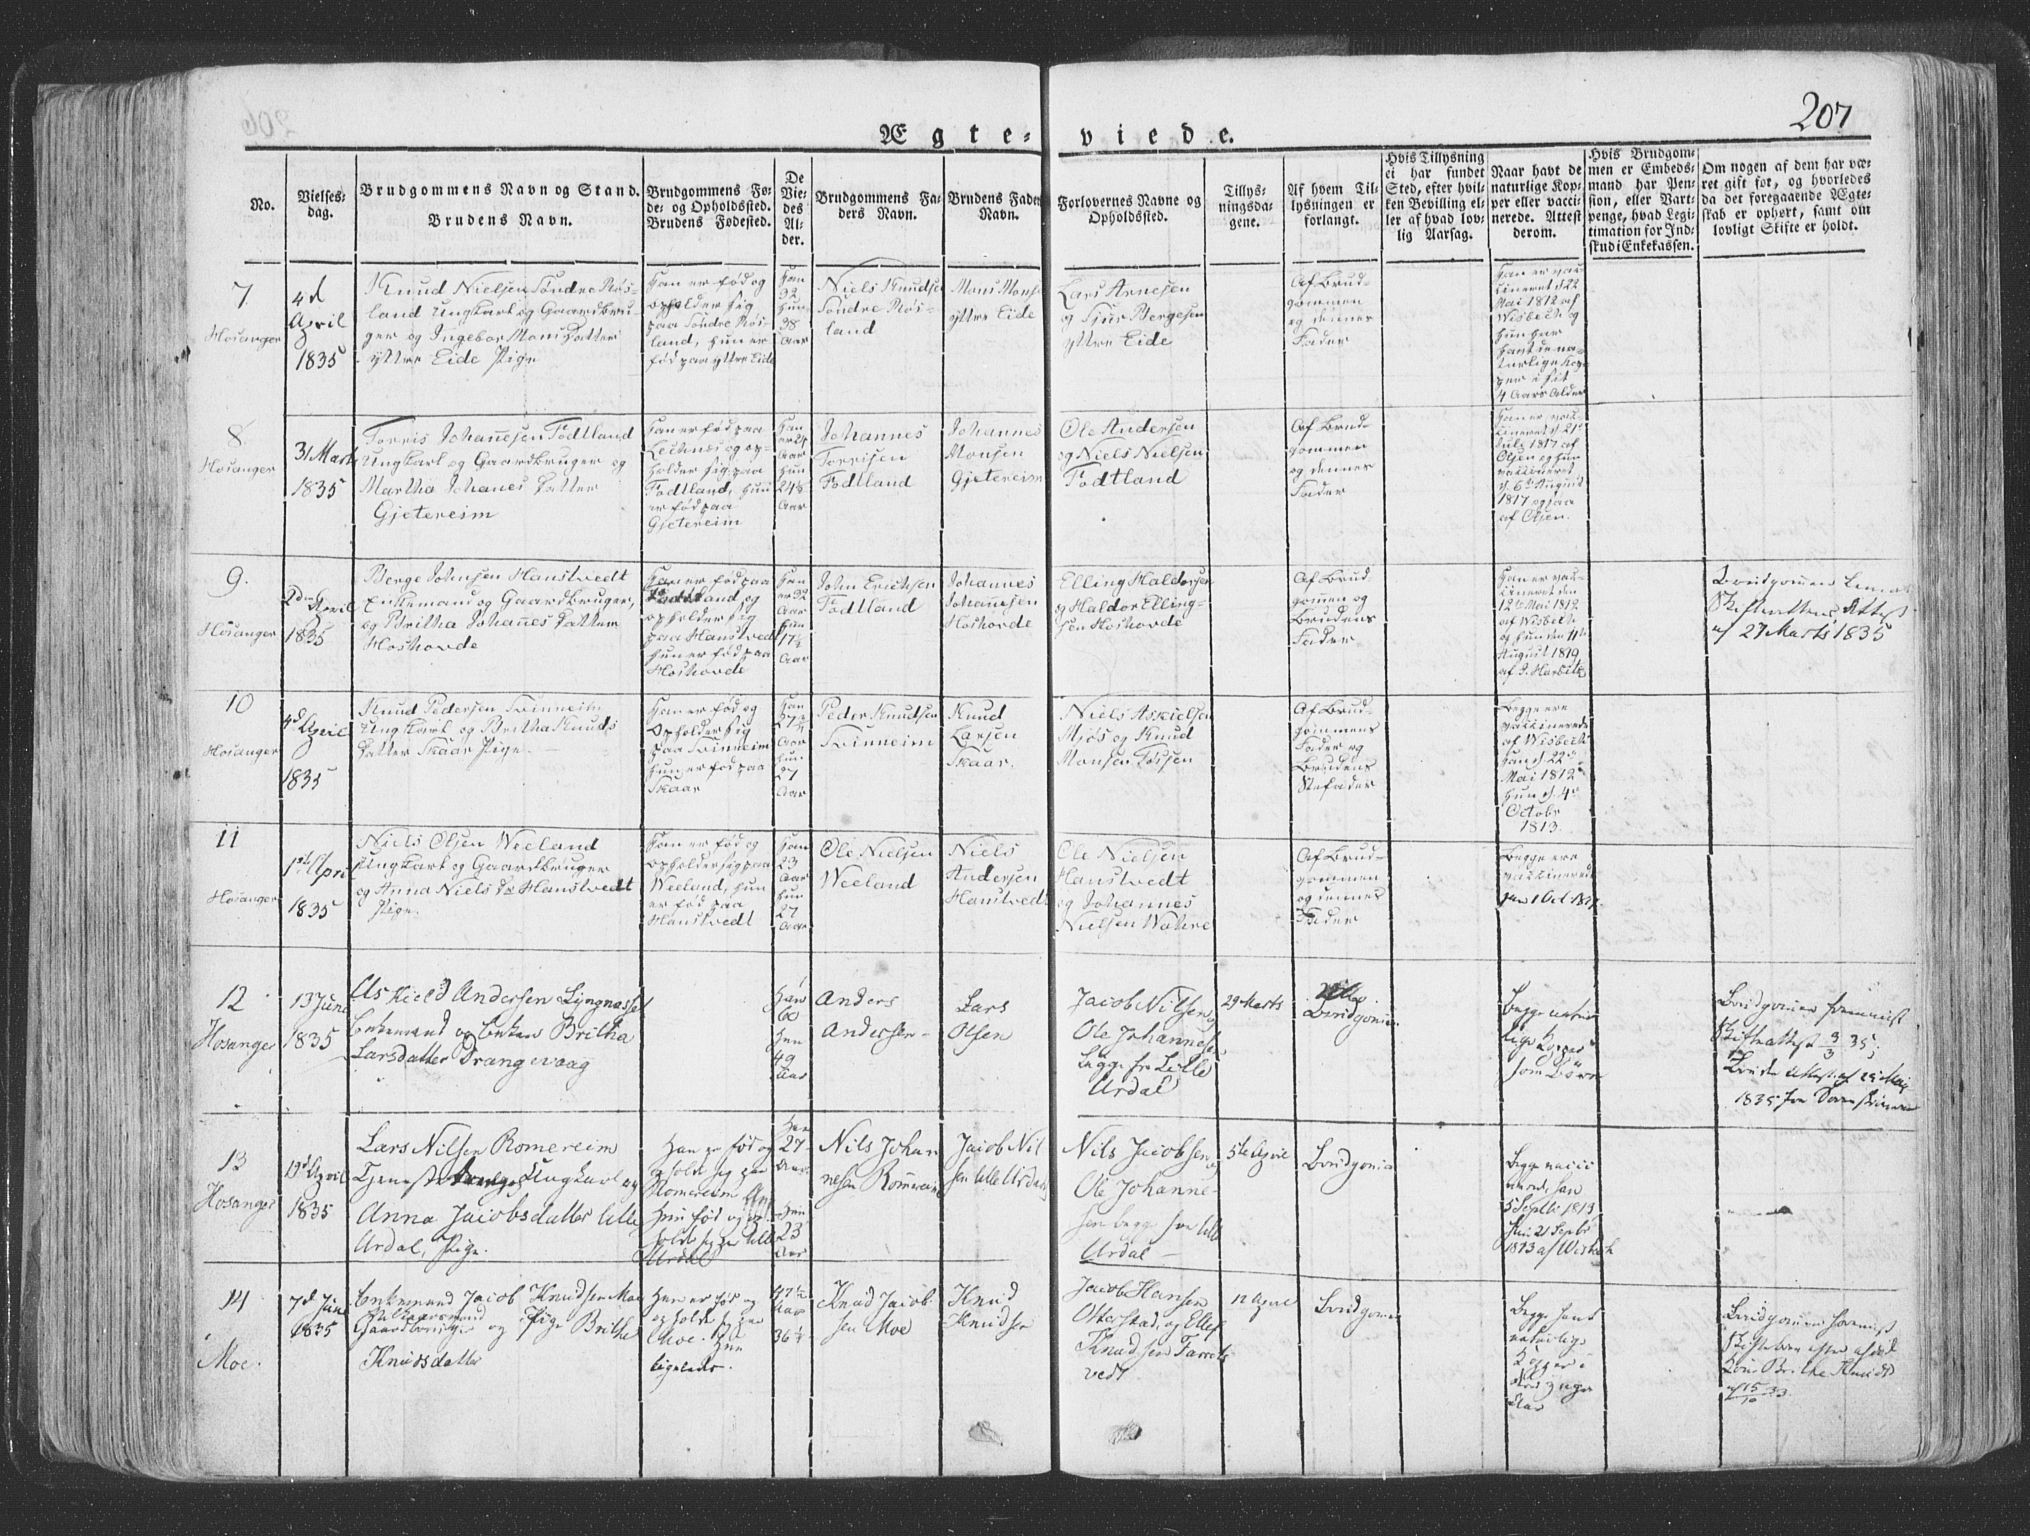 207
Ægte-viede.
No.
Vielses-
dag.
Brudgommens Navn og Stand.
Brudens Navn.
Brudgommens Fø-
de- og Opholdssted.
Brudens Fødested.
De
Vie-
des
Al-
der.
Brudgommens Fa-
ders Navn.
Brudens Faders
Navn.
Forlovernes Navne og
Opholdssted.
Tillys-
ningsda-
gene.
Af hvem Til-
lysningen er
forlangt.
Hvis Tillysning
ei har fundet
Sted, efter hvil-
ken Bevilling el-
ler af hvad lov-
lig Aarsag.
Naar havt de
naturlige Kop-
per eller vacci-
nerede. Attest
derom.
Hvis Brudgom-
men er Embeds-
mand har Pen-
sion, eller Vart-
penge, hvad Legi-
timation for Ind-
skud i Enkekassen.
Om nogen af dem har væ-
ret gift før, og hvorledes
da det foregaaende Ægte-
skab er ophørt, samt om
lovligt Skifte er holdt.
7
Hosanger
4d
April
1835
Knud Nielsen Søndre Røs-
land Ungkarl og Gaardbru-
ger og Ingebor Mons Datter
yttre Eide Pige
Han er fød og
opholder sig
paa Søndre Røs-
land, hun er
fød paa yttre Eide
Han
32
hun
38
Aar
Niels Knudsen
Søndre Røs-
land
Mons Monsen
yttre Eide
Lars Arnesen
og Sjur Bergesen
yttre Eide
Af Brud-
gommen
og dennes
Fader
Han er vac-
cineret d 22
Mai 1812 af
Wisbech og
hun har
havt de na-
turlige Kop-
per i sit
4 Aars Alder
8
Hosanger
31 Marts
1835
Torris Johannesen Fodtland
Ungkarl og Gaardbruger og
Martha Johanes Datter
Gjetereim
Han er fød paa
Leiknes og op-
holder sig paa
Fodtland, hun
er fød paa
Gjetereim
Han
Aar
hun
24½
Aar
Johannes
Torrisen
Fodtland
Johannes
Monsen
Gjetereim
Ole Andersen
og Niels Nielsen
Fodtland
Af Brud-
gommen
og dennes
Fader
Han er vac-
cineret d 21
Juli 1817 af
Olsen og hun
vaccineret
d. 6te August
1817 ogsaa
af Olsen.
9.
Hosanger
2den April
1835
Berge Johnsen Hanstvedt
Enkemand og Gaardbruger,
og Britha Johannes Datter
Hoshovde
Han er fød paa
Fodtland og
opholder sig
paa Hanstvedt
hun er fød paa
Hoshovde
Han
er 32
Aar
hun
17½
Aar
John Erichsen
Fodtland
Johannes
Johannesen
Hoshovde
Elling Haldorsen
og Haldor Elling-
sen Hoshovde
Af Brud-
gommen og
Brudens
Fader
Han er vac-
cineret den
12te Mai 1812
af Wisbech
og hun den 11te
August 1819
af J. Harbitz
Brudgommen Enkem
Skifterettens Attest
af 27 Marts 1835
10
Hosanger
4d April
1835
Knud Pedersen Tvinneim
Ungkarl og Britha Knuds
Datter Skaar Pige.
Han er fød og
Opholder sig
paa Tvinneim
hun er fød paa
Skaar
Han
27¾
Aar
hun
27
Aar
Peder Knudsen
Tvinneim
Knud
Larsen
Skaar.
Niels Askielsen
Mjøs og Knud
Monsen Fossen
Af Brud-
gommens
Fader og
Brudens
Stefader
Begge ere
vaccinerede
af Wisbech
han d 22d
Mai 1812
hun d. 4de
Octobr
1813.
11
Hosanger
1ste April
1835
Niels Olsen Weeland
Ungkarl og Gaardbruger
og Anna Niels Dr Hanstvedt
Pige.
Han er fød og
opholder sig paa
Weeland, hun
er fød paa
Hanstvedt
Han
23
Aar
hun
27
Aar
Ole Nielsen
Weeland
Niels
Andersen
Hanstvedt
Ole Nielsen
Hanstvedt
og Johannes
Nielsen Watne
Af Brud-
gommen
og dennes
Fader
Begge ere
vaccinerede
12
Hosanger
13 June
1835
Askield Andersen Lyngnasset
Enkemand og Enken Britha
Larsdatter Drangevaag
Han
60
Hun
49
Aar
Anders
Andersen
Lars
Olsen
Jacob Nilsen og
Ole Johannesen
begge fra Lille
Urdal
29 Marts
Brudgommen
Begge natur
lige Kopper
som Børn
Brudgommen fremvist
Skifteattest 9/3 35;
Bruden Attest af 29 Mai
1835 fra
13
Hosanger
19d April
1835
Lars Nilsen Romereim
Tjenestedreng Ungkarl og
Anna Jacobsdatter Lille
Urdal, Pige.
Han er fød og
opholdt sig paa
Romereim
Hun fød og op-
holdt sig paa Lille
Urdal
Han
27
Aar
Hun
23
Aar
Nils Johan
nesen Romereim
Jacob Nil
sen Lille Urdal
Nils Jacobsen og
Ole Johanne-
sen begge fra Lille
Urdal
5te April
Brudgommen
Begge vacci
nerede, han
5 Septbr 1813
Hun 21 Septbr
1813 af Wisbech
14
Moe.
7d June
1835
Enkemand Jacob Knudsen Moe
Gaardbruger og Pige Brithe
Knudsdatter
Han er fød og
opholdt sig paa
Moe. Hun
ligeledes.
47½
Aar
36¼
Knud Jacob-
sen Moe
Knud
Knudsen
Jacob Hansen
Otterstad, og Ellef
Knudsen Farrets
vedt
12 April
Brudgommen
Begge havt
naturlige
Kopper i
Aar
Brudgommen fremvist
Skiftebrev efter afdød
Kone Brithe Knudsd
af 15/10 33.